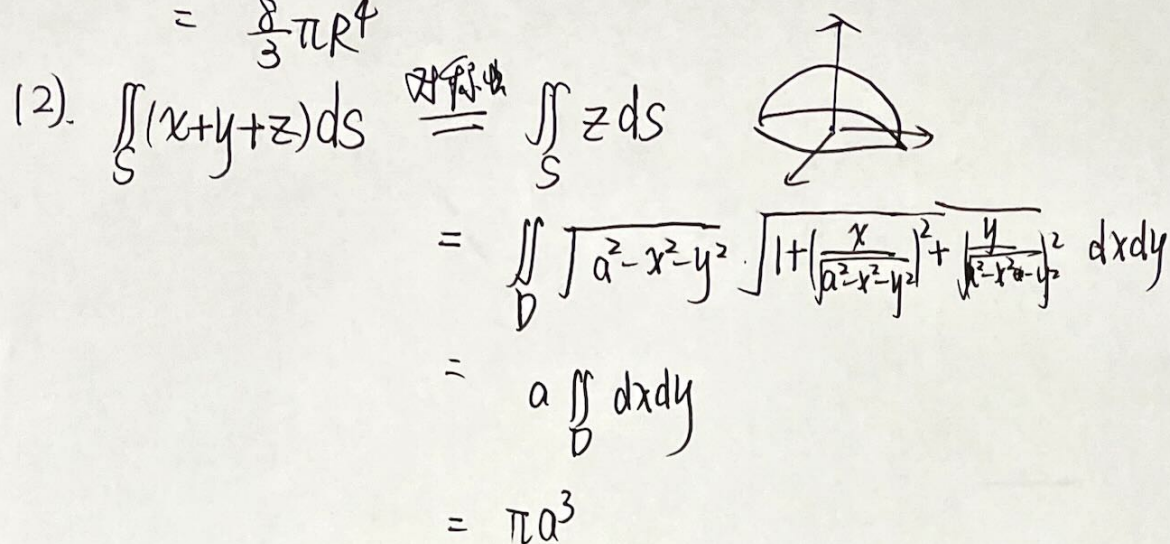 = 8/3 πR⁴
(2). ∬_S (x+y+z)ds 对称性= ∬_S z ds
= ∬_D √(a²-x²-y²) · √(1+(x/√(a²-x²-y²))²+(y/√(a²-x²-y²))²) dxdy
= a ∬_D dxdy
= πa³